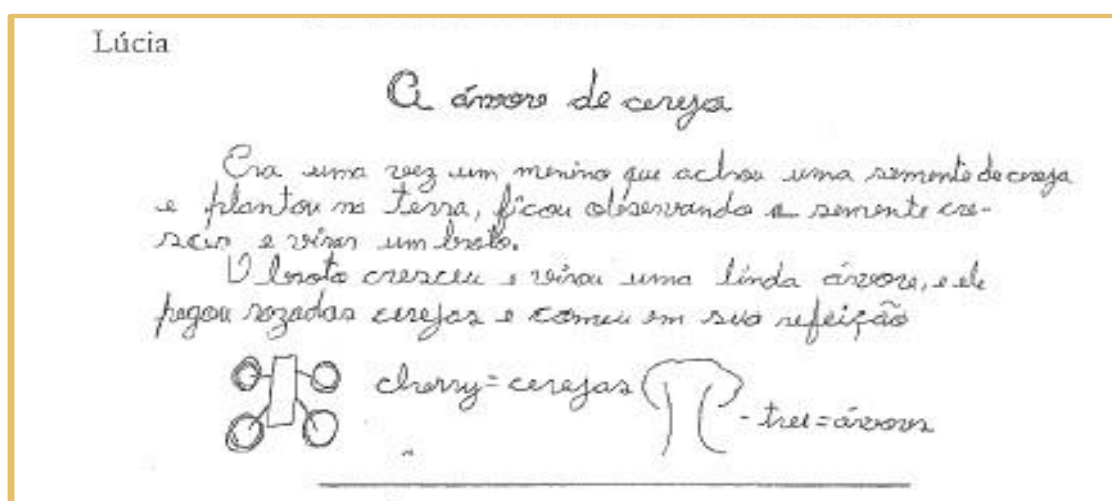 Lúcia
A árvore de cereja
Era uma vez um menino que achou uma semente de cereja
e plantou na terra, ficou observando a semente cre-
scer e virar um broto.
O broto cresceu e virou uma linda árvore, e ele
pegou rozadas cerejas e comeu em sua refeição
cherry = cerejas
- tree = árvores